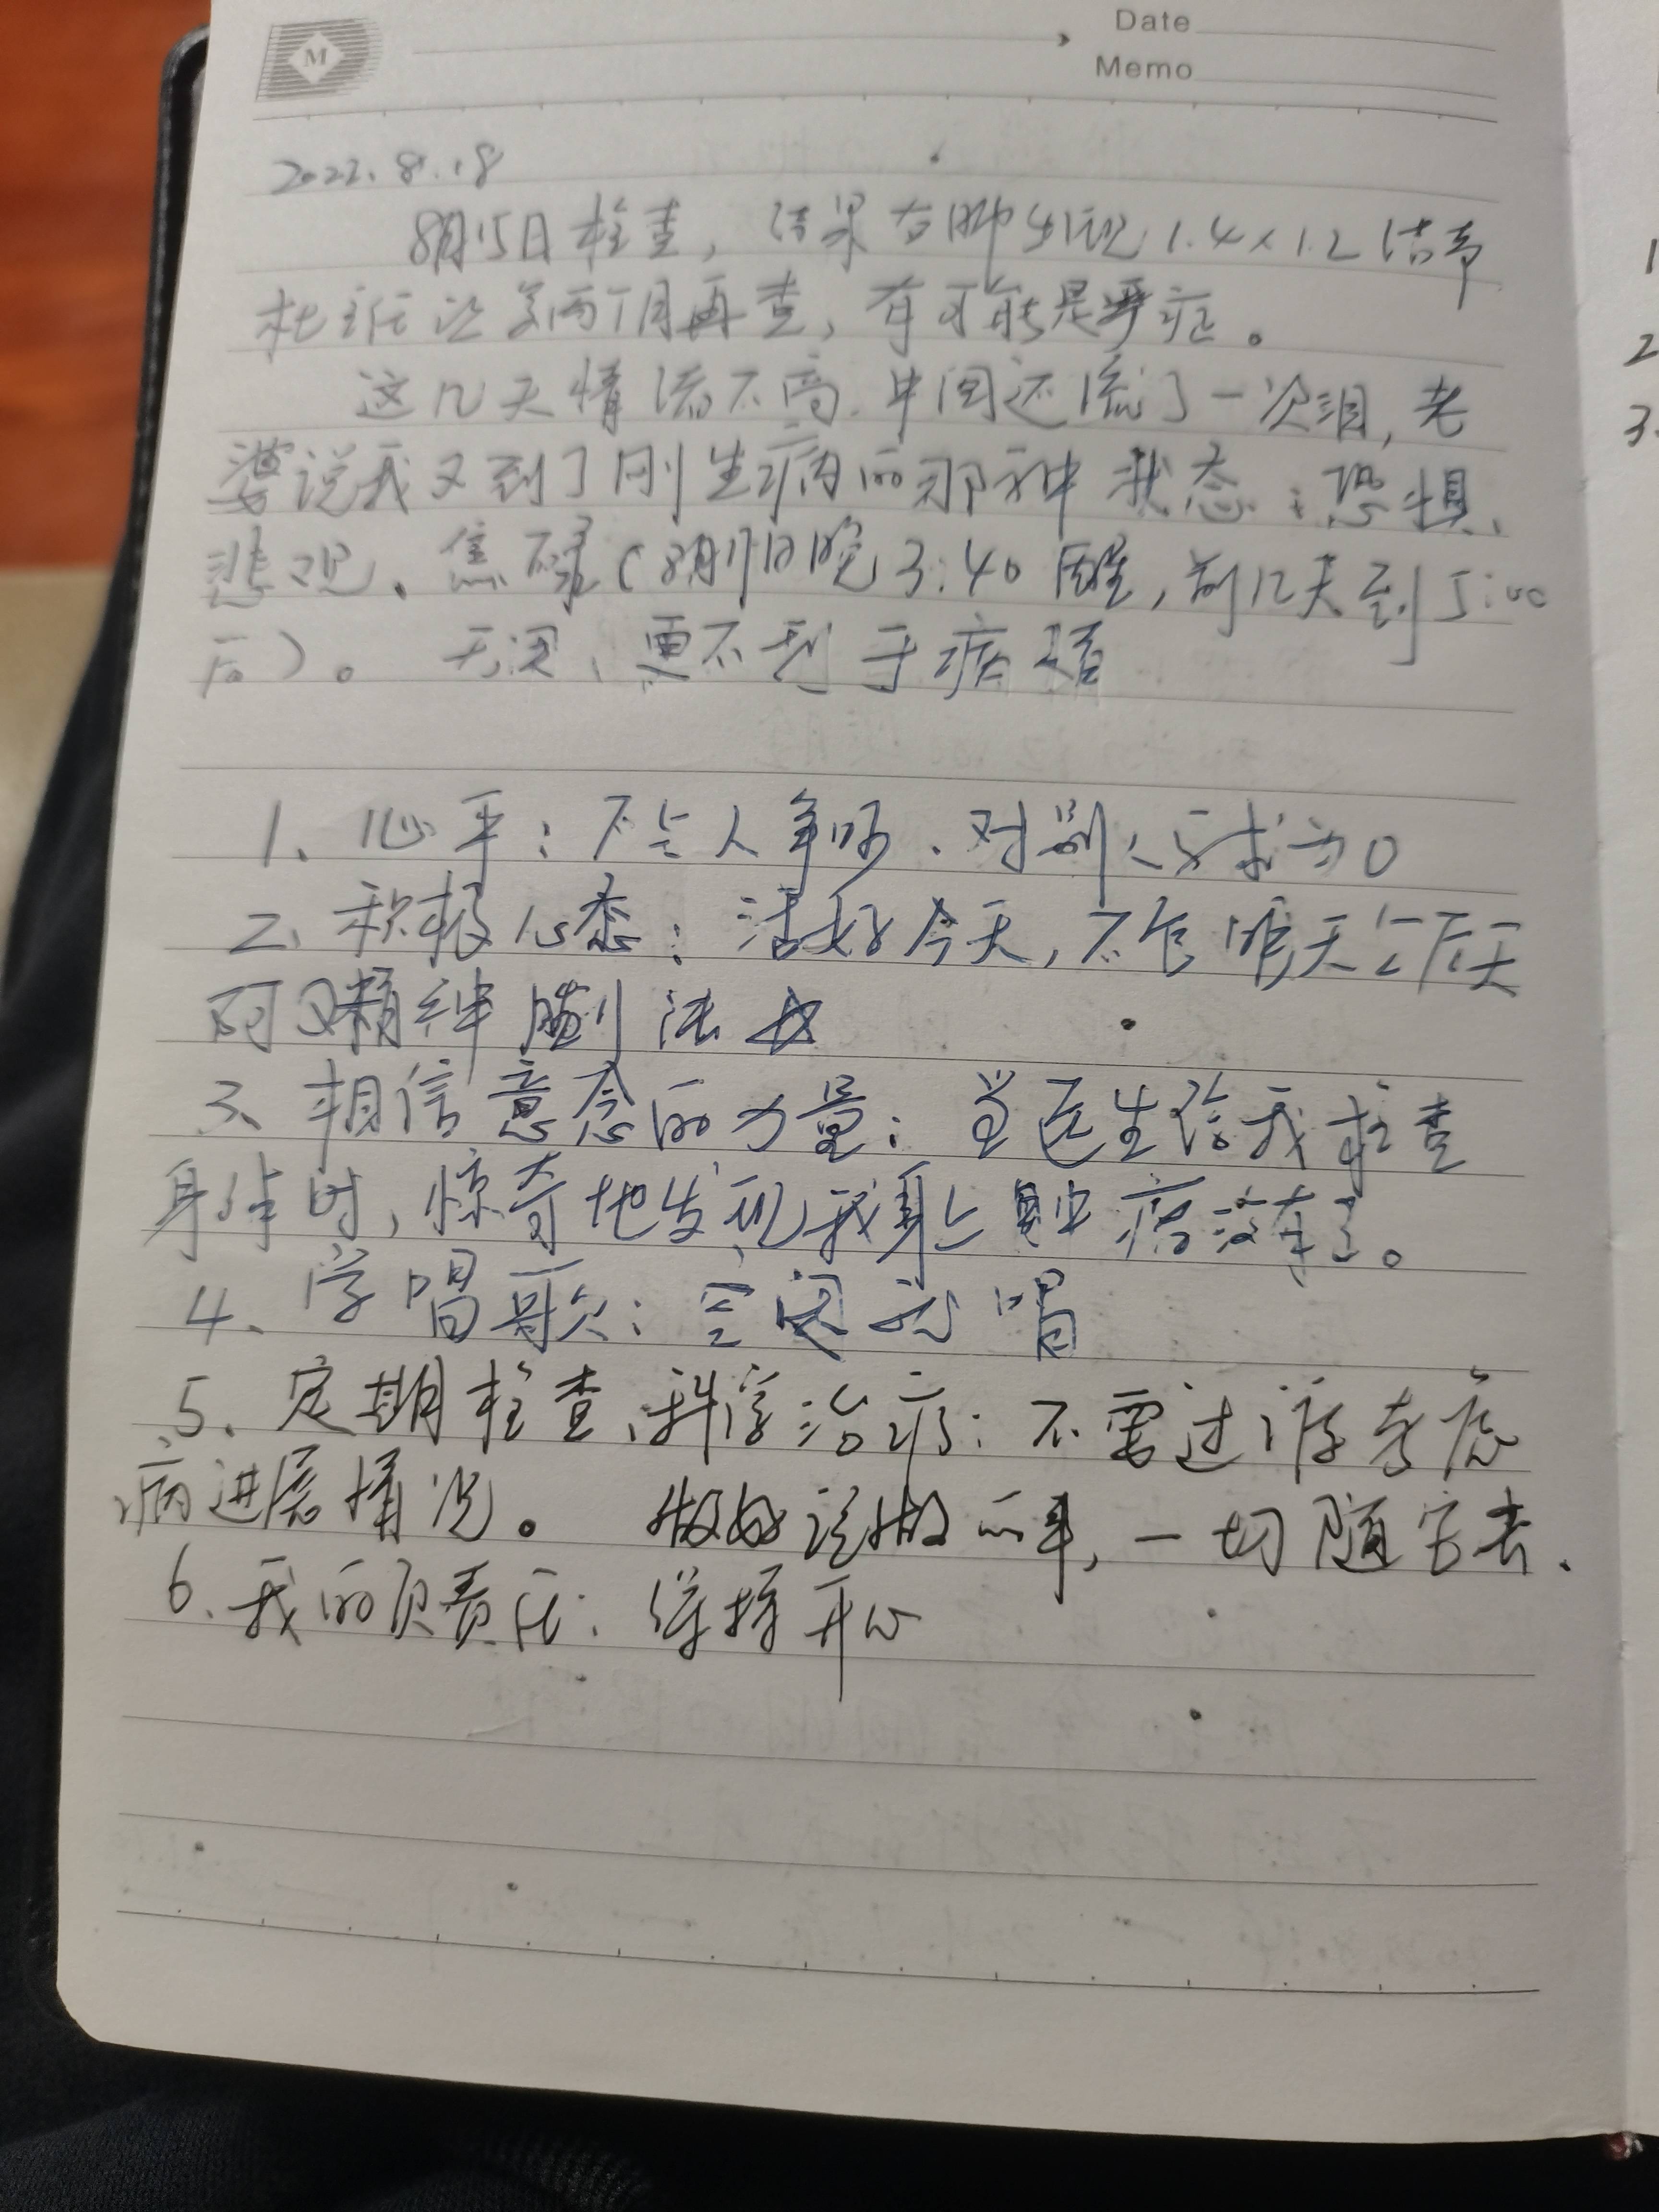 M
Date
Memo
2022.8.18
8月15日检查，结果右肺出现1.4×1.2结节
杜主任让了两个月再查，有可能是炎症。
这几天情绪不高，中间还流了一次泪，老
婆说我又到了刚生病的那种状态：恐惧、
悲观、焦虑（8月17日晚3:40醒，前几天到5:00
后）。无用，更不利于病情
1、心平：不与人争吵、对别人要求为0
2、积极心态：活好今天，不管昨天与后天
阿Q精神胜利法
3、相信意念的力量：当医生给我检查
身体时，惊奇地发现我身上肿瘤没有了。
4、学唱歌：空闲就唱
5、定期检查、科学治疗：不需过度考虑
病进展情况。做好该做的事，一切随它去.
6、我的责任：保持开心
1
2
3.